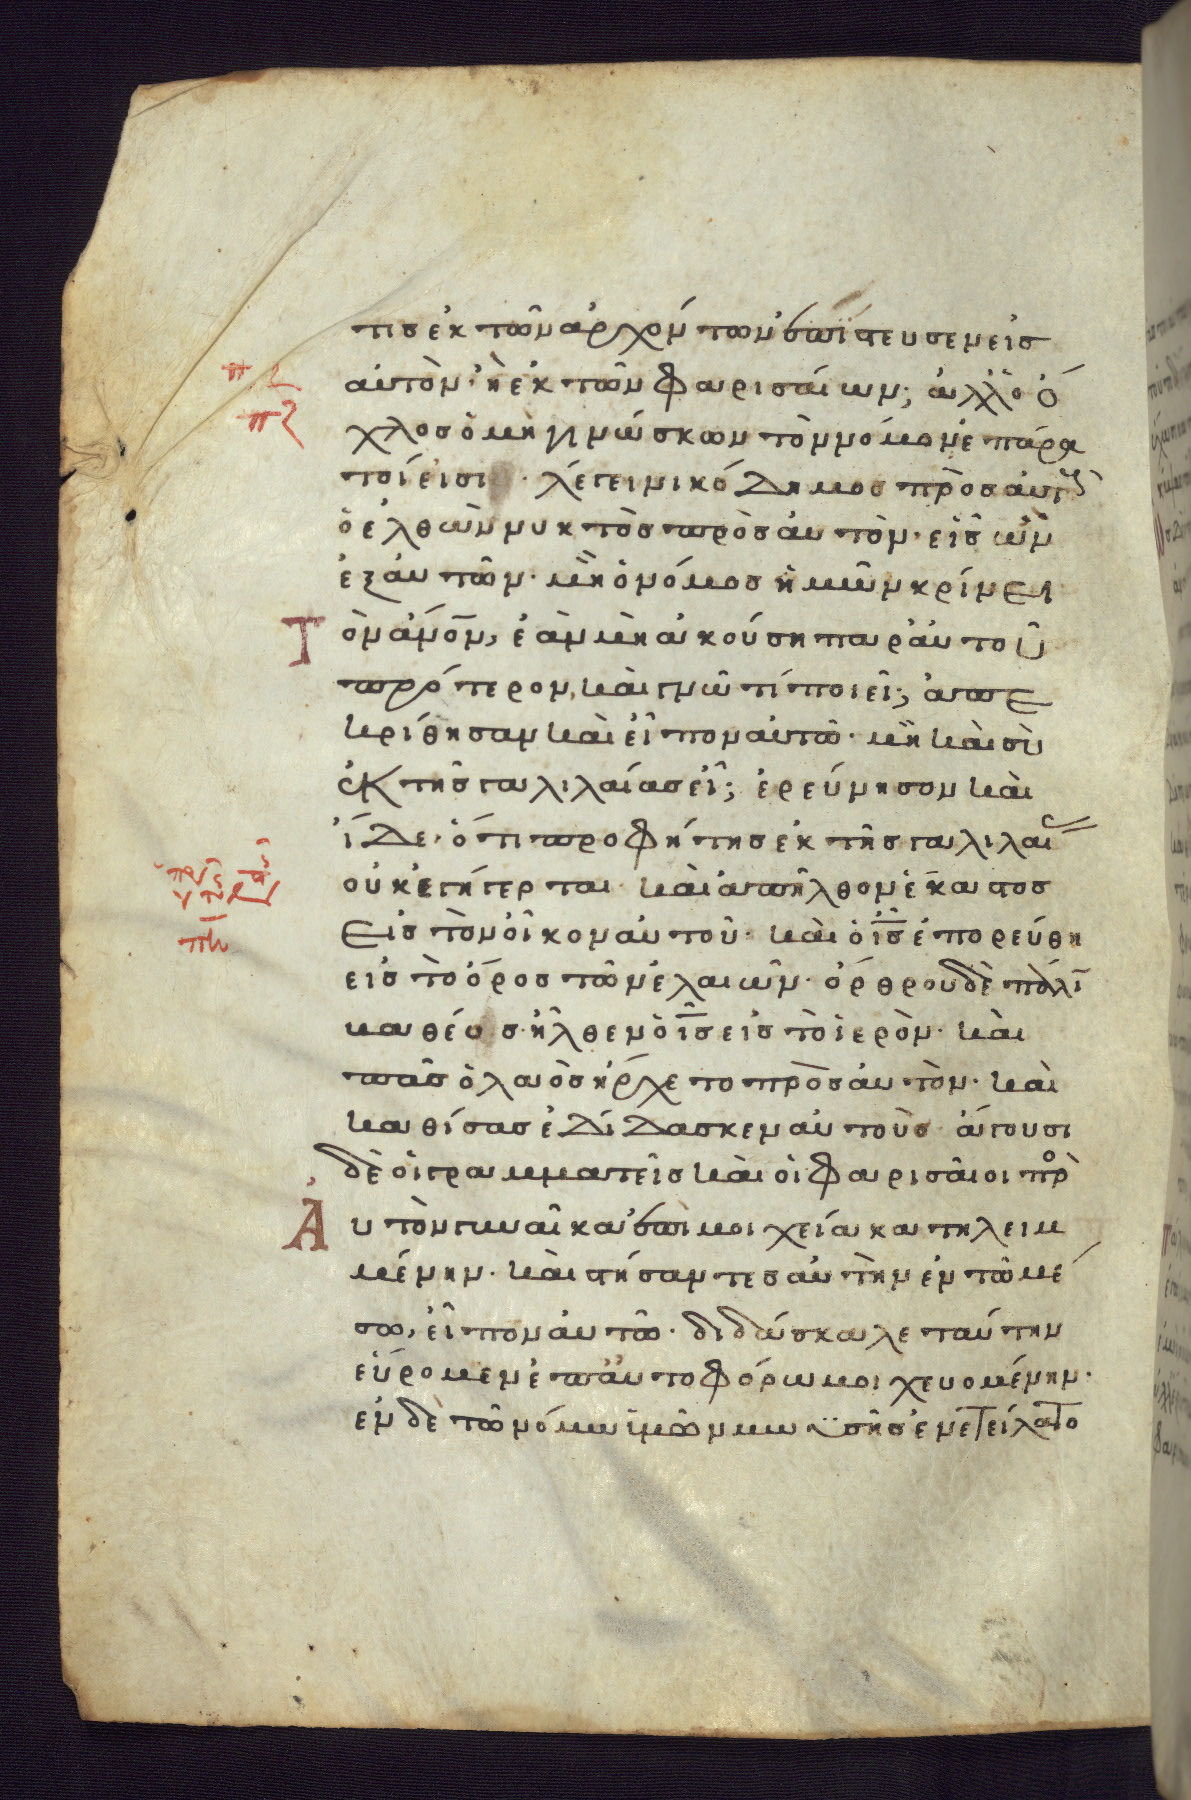 τις ἐκ τῶν ἀρχόντων ἐπίστευσεν εἰς
αὐτὸν· ἢ ἐκ τῶν Φαρισαίων; ἀλλ ὁ ὄ
χλος ὁ μὴ γινώσκων τὸν νόμον ἐπάρα
τοί εἰσι· λέγει νικόδημος πρὸς αὐτοὺς
ὁ ἐλθὼν νυκτὸς πρὸς αὐτὸν· εἷς ὢν
ἐξ αὐτῶν· μὴ ὁ νόμος ἡμῶν κρίνει
Τὸν ἄνον, ἐὰν μὴ ἀκούσῃ παρ αὐτοῦ
πρότερον, καὶ γνῶ τί ποιεῖ; ἀπε
κρίθησαν καὶ εἶπον αὐτῶ· μὴ καὶ σὺ
ἐκ τῆς γαλιλαίας εἶ; ἐρεύνησον καὶ
ἴδε· ὅτι προφήτης ἐκ τῆς γαλιλαί
οὐκ ἐγήγερται· καὶ ἀπῆλθον ἕκαστος
εἰς τὸν οἶκον αὐτοῦ· καὶ ὁ ις ἐπορεύθη
εἰς τὸ ὄρος τῶν ἐλαιῶν· ὄρθρου δὲ πάλι
βαθέος· ἦλθεν ὁ ις εἰς τὸ ἱερὸν· καὶ
πᾶς ὁ λαὸς ἤρχετο πρὸς αὐτὸν· καὶ
καθίσας ἐδίδασκεν αὐτοὺς· ἄγουσι
δὲ οἱ γραμματεῖς καὶ οἱ Φαρισαῖοι πρὸ
Αὐτὸν γυναῖκα ἐπὶ μοιχεία κατηλειμ
μένην· καὶ στήσαντες αὐτὴν ἐν τῶ μέ
σω, εἶπον αὐτῶ· διδάσκαλε ταύτην
εὕρομεν ἐπ αὐτοφόρω μοιχευομένην·
ἐν δὲ τῶ νόμω ἡμῶν μωϋσῆς ἐνετείλατο